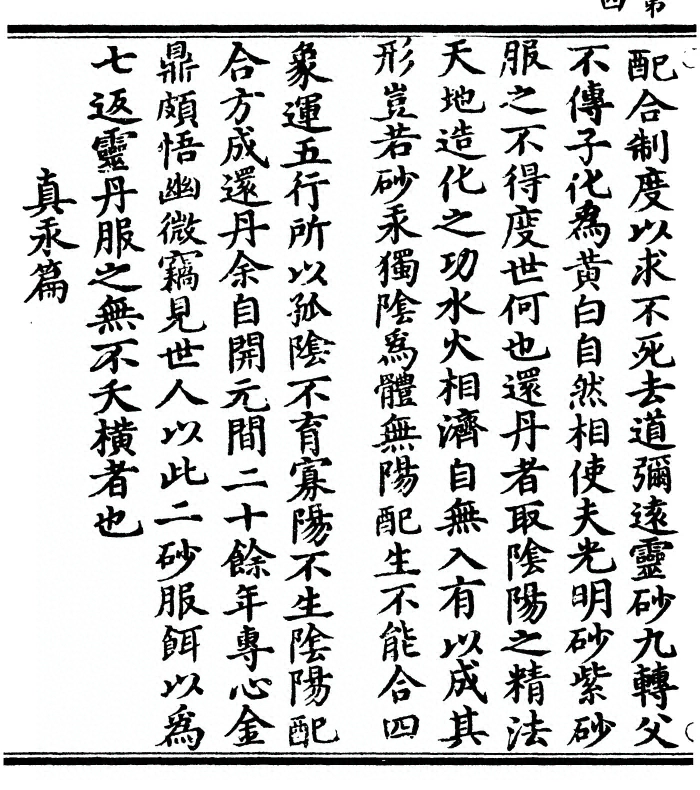 第
四
配合制度以求不死去道彌遠靈砂九轉父
不傳子化爲黃白自然相使夫光明砂紫砂
服之不得度世何也還丹者取陰陽之精法
天地造化之功水火相濟自無入有以成其
形豈若砂汞獨陰爲體無陽配生不能合四
象運五行所以孤陰不育寡陽不生陰陽配
合方成還丹余自開元間二十餘年專心金
鼎頗悟幽微竊見世人以此二砂服餌以爲
七返靈丹服之無不夭橫者也
真汞篇